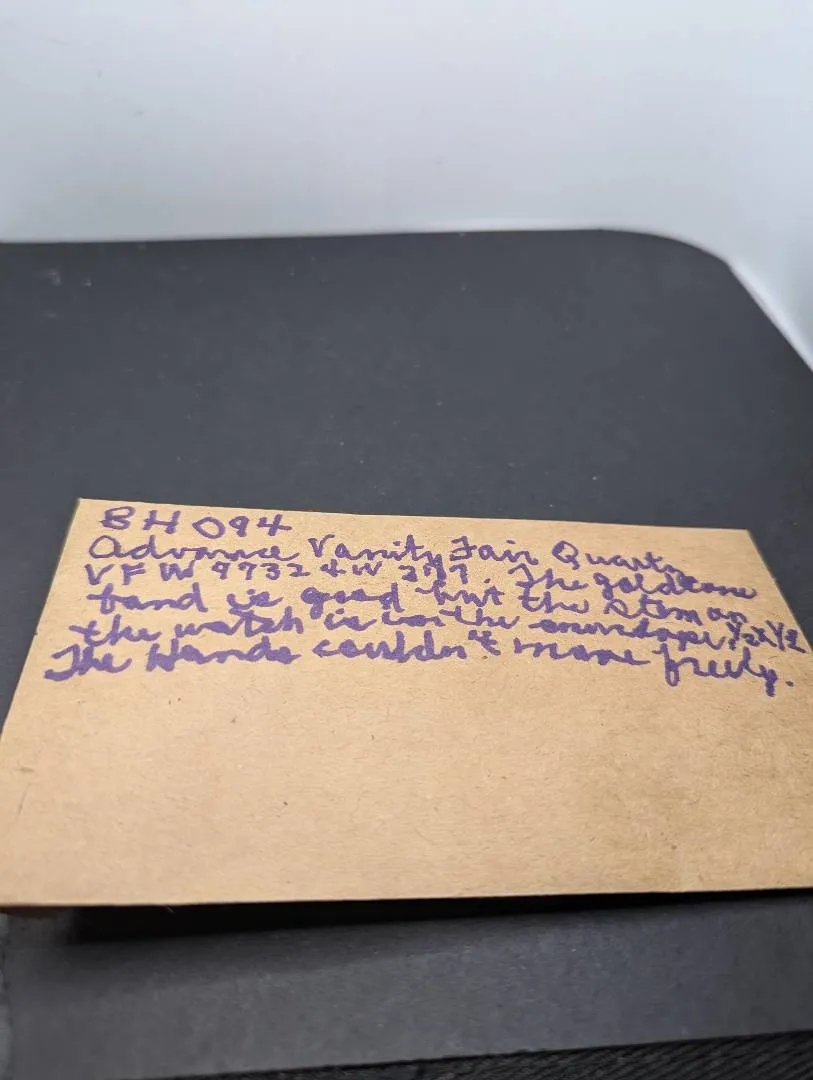 BH 094
Advance Vanity Fair Quartz
VFW 9732 & W 299. The goldtone
band is good but the stem on
the watch is in the envelope. ½x½
The Hands couldn't move freely.